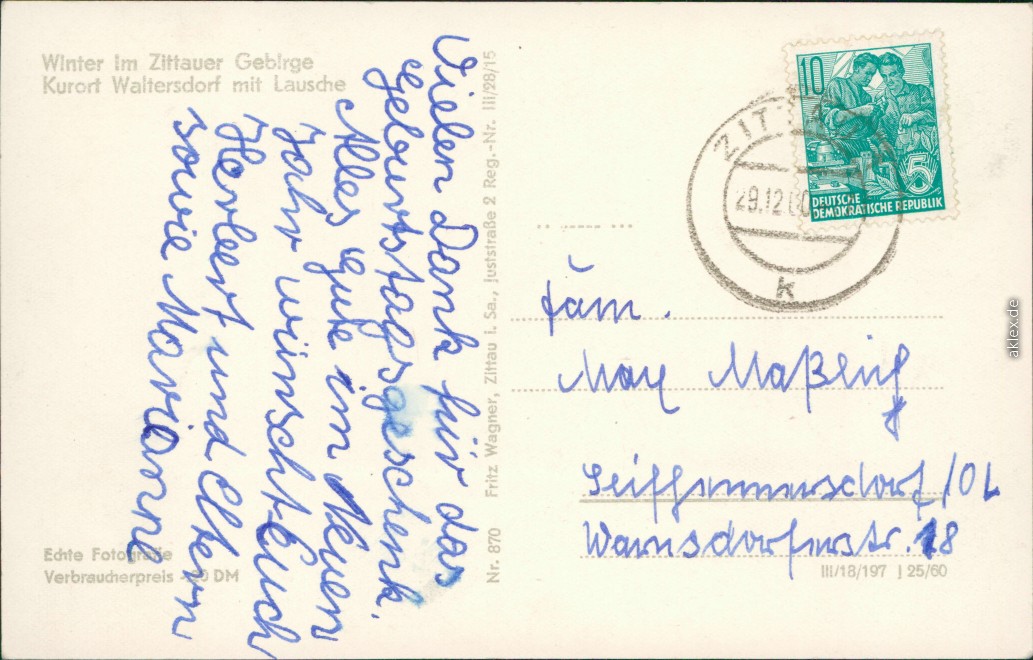 Winter im Zittauer Gebirge
Kurort Waltersdorf mit Lausche
Vielen Dank für das
Geburtstagsgeschenk.
Alles Gute im Neuen
Jahr wünscht Euch
Herbert und Eltern
sowie Marianne
Echte Fotografie
Verbraucherpreis DM
Nr. 870 Fritz Wagner, Zittau i. Sa., Juststraße 2 Reg.-Nr. III/28/15
10
5
DEUTSCHE
DEMOKRATISCHE REPUBLIK
ZITTAU
29.12.60
k
Fam.
Max
Seifhennersdorf/OL
Warnsdorferstr. 18
III/18/197 J 25/60
aklex.de